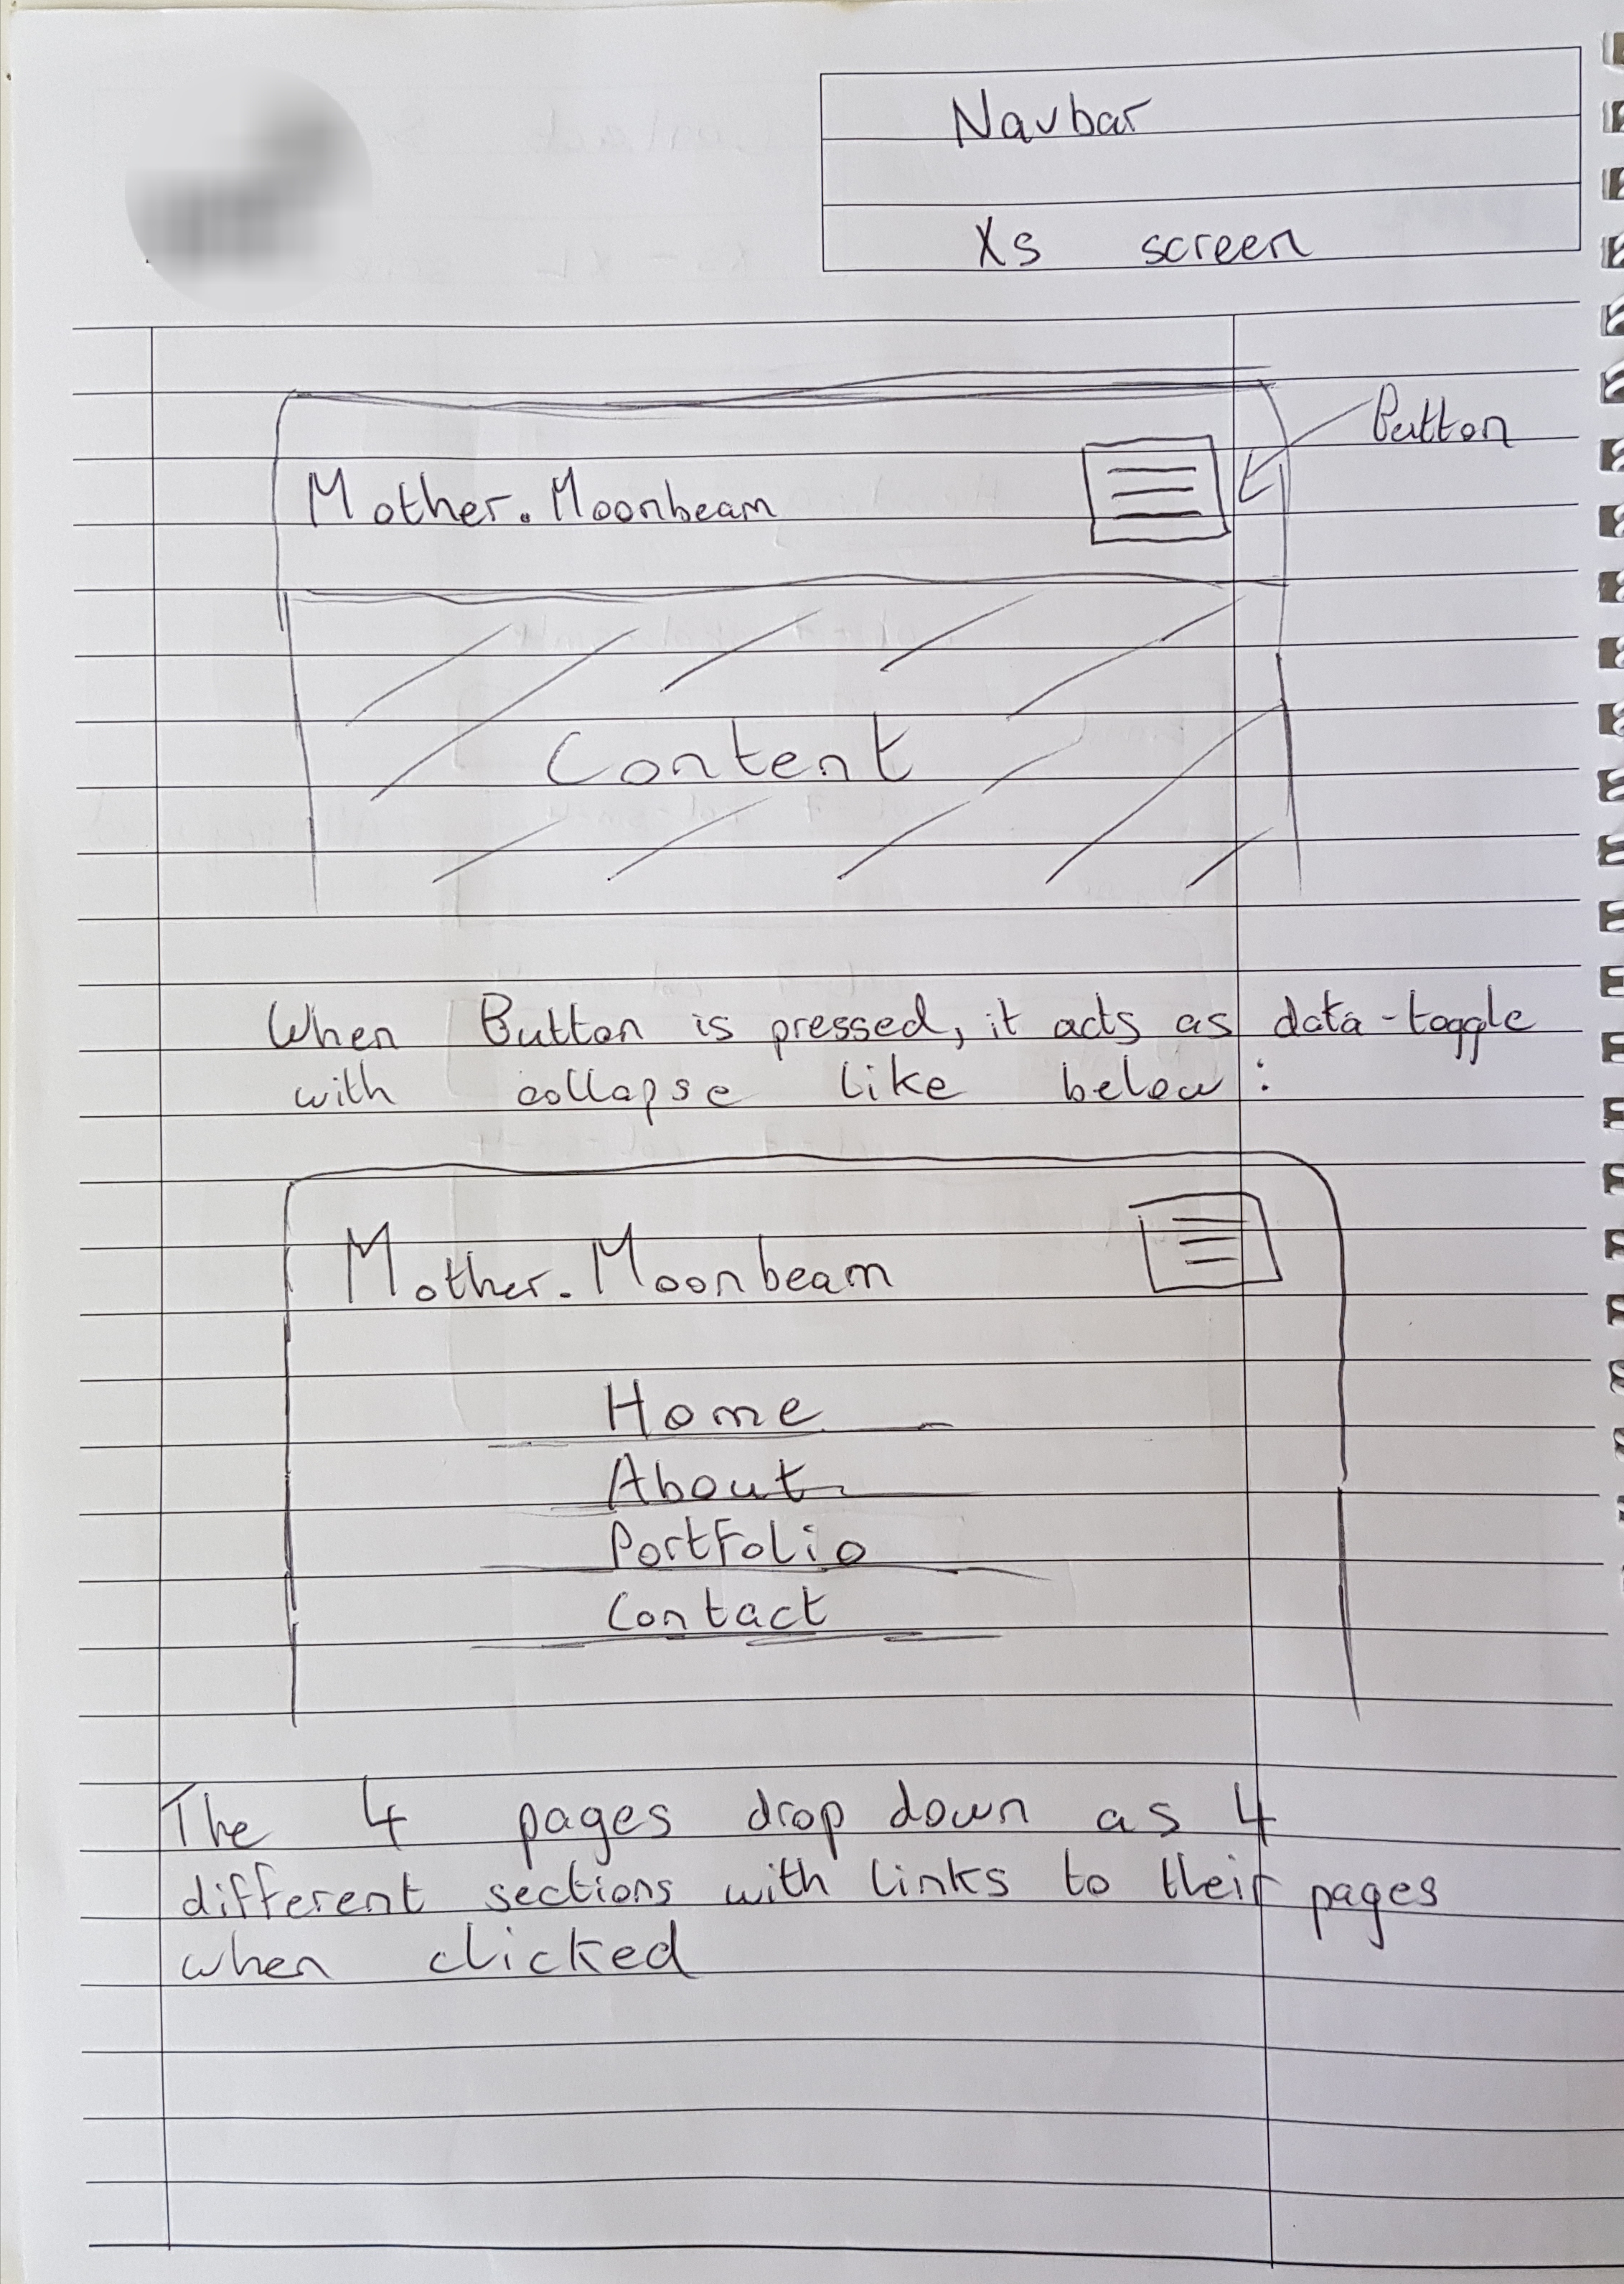 Navbar
Xs screen
Button
Mother.Moonbeam
Content
When Button is pressed, it acts as data-toggle
with collapse like below:
Mother.Moonbeam
Home
About
Portfolio
Contact
The 4 pages drop down as 4
different sections with links to their pages
when clicked